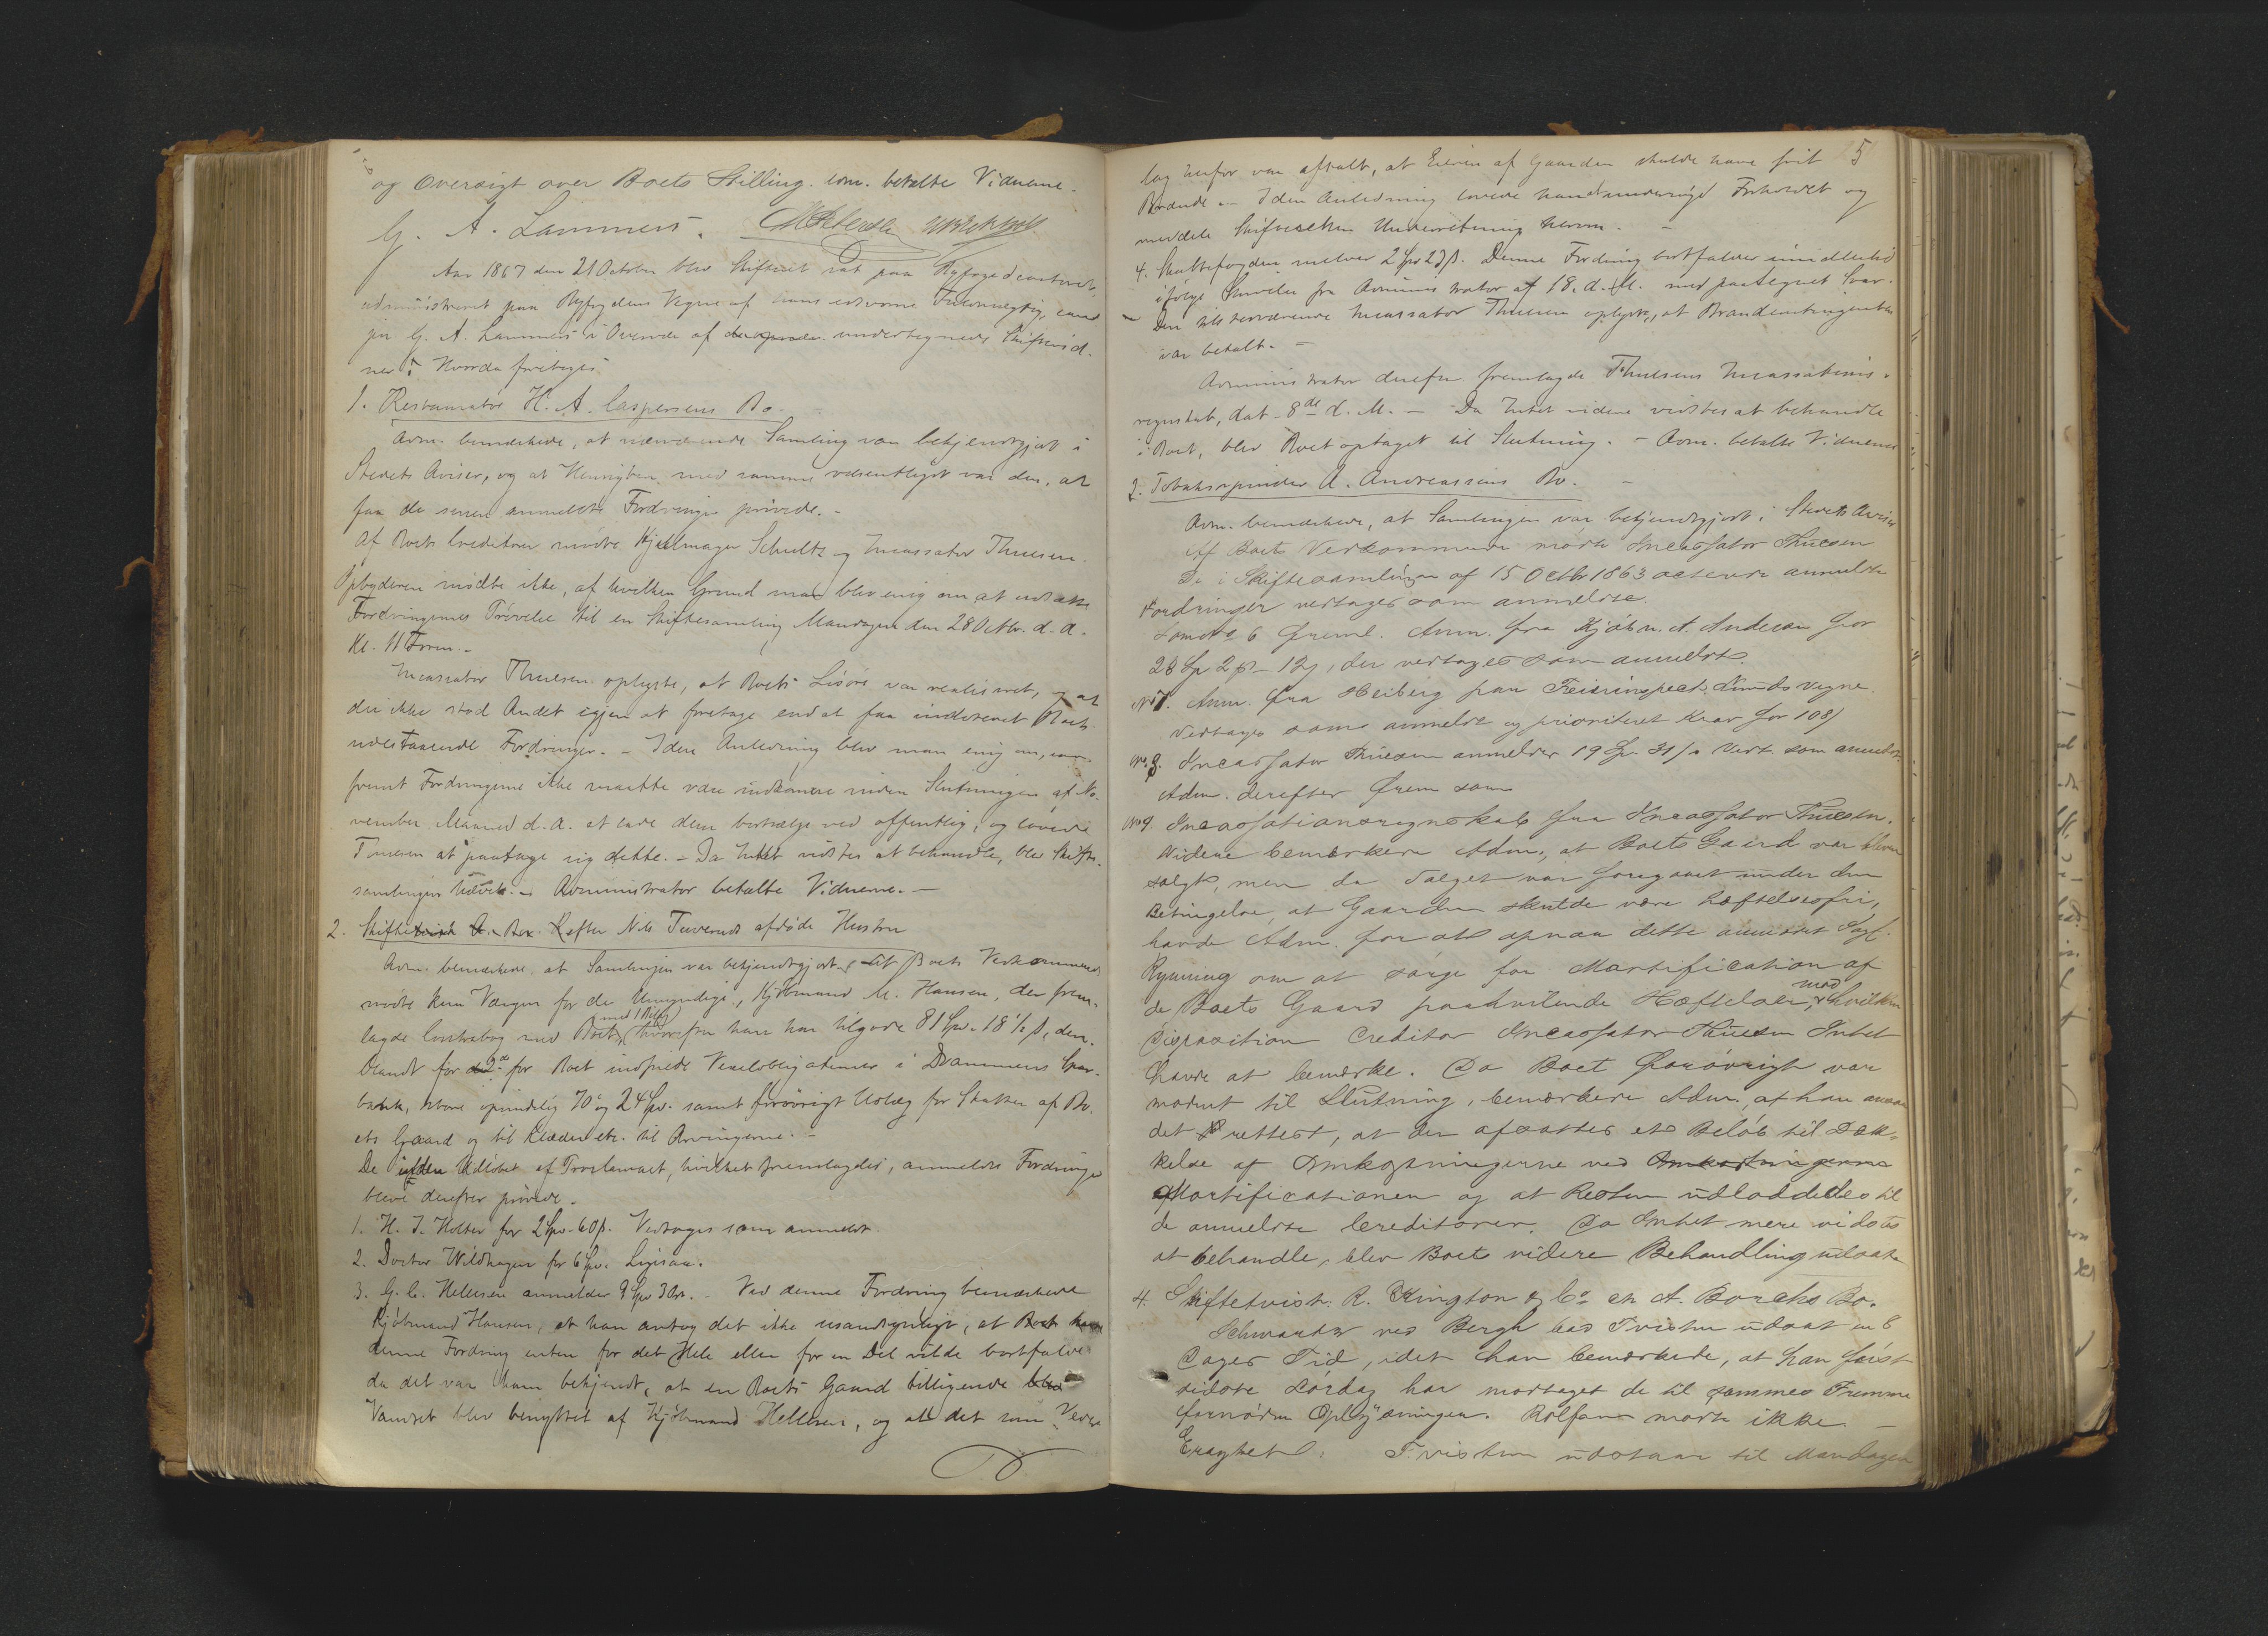 og Oversigt over Boets Stilling. Adm. betalte Vidnerne.
G. A. Lammers.
Aar 1867 den 21 October blev Skifteret sat paa Byfogedcontoret,
administreret paa Byfogdens Vegne af hans edsvorne Fuldmægtig, cand
jur G. A. Lammers i Overvær af undertegnede Skiftevid-
ner: Hvorda foretoges:
1. Restauratør H. A. Caspersens Bo.
Adm. bemærkede, at nærværende Samling var bekjendtgjort i
Stedets Aviser, og at Hensigten med samme væsentligst var den, at
faa de senere anmeldte Fordringer prøvede.-
Af Boets Creditorer mødte Hjulmager Schultz og Incassator Thuesen.
Opbyderen mødte ikke, af hvilken Grund man blev enig om at udsætte
Fordringernes Prøvelse til en Skiftesamling Mandagen den 28 Octbr. d. A.
Kl. 11 Form.-
Incassator Thuesen oplyste, at Boets Løsøre var realiseret, og at
der ikke stod Andet igjen at foretage end at faa inddrevet Boets
udestaaende Fordringer. - I den Anledning blev man enig om,
fremt Fordringerne ikke maatte være indkomne inden Slutningen af No-
vember Maaned d. A. at lade dem bortsælge ved offentlig, og lovede
Thuesen at paatage sig dette. - Da Intet vidstes at behandle, blev Skifte-
samlingen hævet. - Administrator betalte Vidnerne. -
2. Skifte efter Nils Tuveruds afdøde Hustru
Adm. bemærkede, at Samlingen var bekjendtgjort. Af Boets Vedkommende
mødte kun Værgen for de Umyndige, Kjøbmand M. Hansen, der frem-
lagde Contrabog med Boet, (med 1 Bilag) hvorefter han har tilgode 81 Spd. 18½ ß, der-
iblandt for 2de for Boet indfriede Vexelobligationer i Drammens Spar-
bank, store oprindelig 70 og 24 Spd. samt forøvrigt Udlæg for Skatter af Bo-
ets Gaard og til Klæder etc. til Arvingerne. -
De inden Udløbet af Proclamaet, hvilket fremlagdes, anmeldte Fordringer
bleve derefter prøvede.
1. H. J. Holter for 2 Spd. 60 ß. Vedtages som anmeldt.
2. Doctor Wildhagen for 6 Spd. Ligesaa.
3. G. C. Hellesen anmelder 9 Spd 3 Ort. - Ved denne Fordring bemærkede
Kjøbmand Hansen, at han antog det ikke usandsynligt, at
denne Fordring enten for det Hele eller for en Del vilde bortfalde
da det var ham bekjendt, at en Boets Gaard tilliggende
Vandret blev benyttet af Kjøbmand Hellesen, og at det som Veder
5
lag herfor var aftalt, at Eieren af Gaarden skulde have frit
Brænde. - I den Anledning lovede han at undersøge Forholdet og
meddele Skifteretten Underretning herom. -
4. Skattefogden melder 2 Spd 23 ß. Denne Fordring bortfalder imidlertid
ifølge Skrivelse fra Administrator af 18. d. M. med paategnet Svar.
- Den tilstedeværende Incassator Thuesen oplyste, at Brandcontingenten
var betalt. -
Administrator derefter fremlagde Thuesens Incassations-
regnskab, dat. 8de d. M. - Da Intet videre vidstes at behandle
i Boet, blev Boet optaget til Slutning. - Adm. betalte Vidnerne
3. Tobaksspinder A. Andreassens Bo. -
Adm. bemærkede, at Samlingen var bekjendtgjort i Stedets Aviser
Af Boets Vedkommende mødte Incassator Thuesen
De i Skiftesamlingen af 15 Octbr 1863 acterede anmeldte
Fordringer vedtages som anmeldte.
Som No 6 freml. Anm. fra Kjøbm. A. Andersen for
28 Sp 2 ₰ 12 ß, der vedtages som anmeldt.
No 7. Anm. fra Heiberg paa vegne.
Vedtages som anmeldt og prioriteret Krav for 108 ß
No. 8. Incassator Thuesen anmelder 19 Sp. 31 ß. Vedt. som anmeldt.
Adm. derefter frem som
No 9. Incassationsregnskab fra Incassator Thuesen.
Videre bemærkede Adm., at Boets Gaard var bleven
solgt, men da Salget var foregaaet under den
Betingelse, at Gaarden skulde være hæftelsesfri,
havde Adm. for at opnaa dette anmodet Sagf.
Rynning om at sørge for Mortification af
de Boets Gaard paahvilende Hæftelser, mod hvilken
Disposition Creditor Incassator Thuesen Intet
havde at bemærke. Da Boet forøvrigt var
modent til Slutning, bemærkede Adm., at han ansaa
det rettest, at der afsattes et Beløb til Dæk-
kelse af Omkostningerne ved Omkostningerne
Mortificationen og at Resten udloddedes til
de anmeldte Creditorer. Da Intet mere vidstes
at behandle, blev Boets videre Behandling udsat
4. Skiftetvist: R. Kington & Co ctr A. Borchs Bo.
Schwartz ved Bergh bad Tvisten udsat en 8
Dages Tid, idet han bemærkede, at han først
sidste Lørdag har modtaget de til sammes Fremme
fornødne Oplysninger. Rolfsen mødte ikke.
Eragtet: Tvisten udstaar til Mandagen